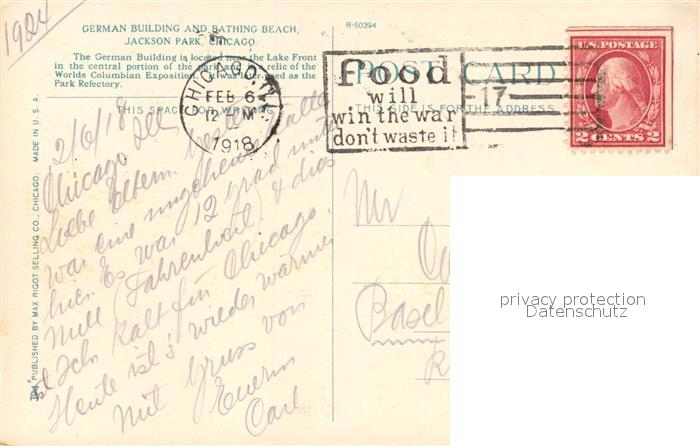 1924
GERMAN BUILDING AND BATHING BEACH,
JACKSON PARK, CHICAGO.
The German Building is located near the Lake Front
in the central portion of the park and is a relic of the
Worlds Columbian Exposition. It was later used as the
Park Refectory.
R-50394
POST CARD
THIS SPACE FOR WRITING
THIS SIDE IS FOR THE ADDRESS
CHICAGO, ILL.
FEB 6
12 M
1918
food
will
win the war
don't waste it
17
U.S. POSTAGE
2 CENTS 2
104 PUBLISHED BY MAX RIGOT SELLING CO., CHICAGO. MADE IN U. S. A.
2/6/18
Chicago Ill.
Liebe Eltern. Gestern
war eine ungeheure Kälte
hier. Es war 12 grad unter
Null (Fahrenheit) & dies
ist sehr kalt für Chicago.
Heute ist's wieder wärmer
Mit Gruss von
Euerm
Carl
Mr
Basel
privacy protection
Datenschutz